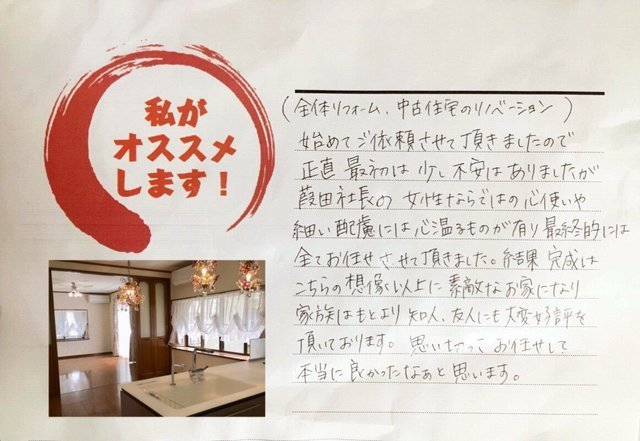 私が
オススメ
します！
(全体リフォーム、中古住宅のリノベーション)
始めてご依頼させて頂きましたので
正直 最初は 少し不安はありましたが
葭田社長の 女性ならではの心使いや
細い配慮には心温るものが有り最終的には
全てお任せさせて頂きました。結果 完成は
こちらの想像い以上に 素敵なお家になり
家族はもとより 知人、友人にも大変好評を
頂いております。 思い切って お任せして
本当に良かったなぁと思います。